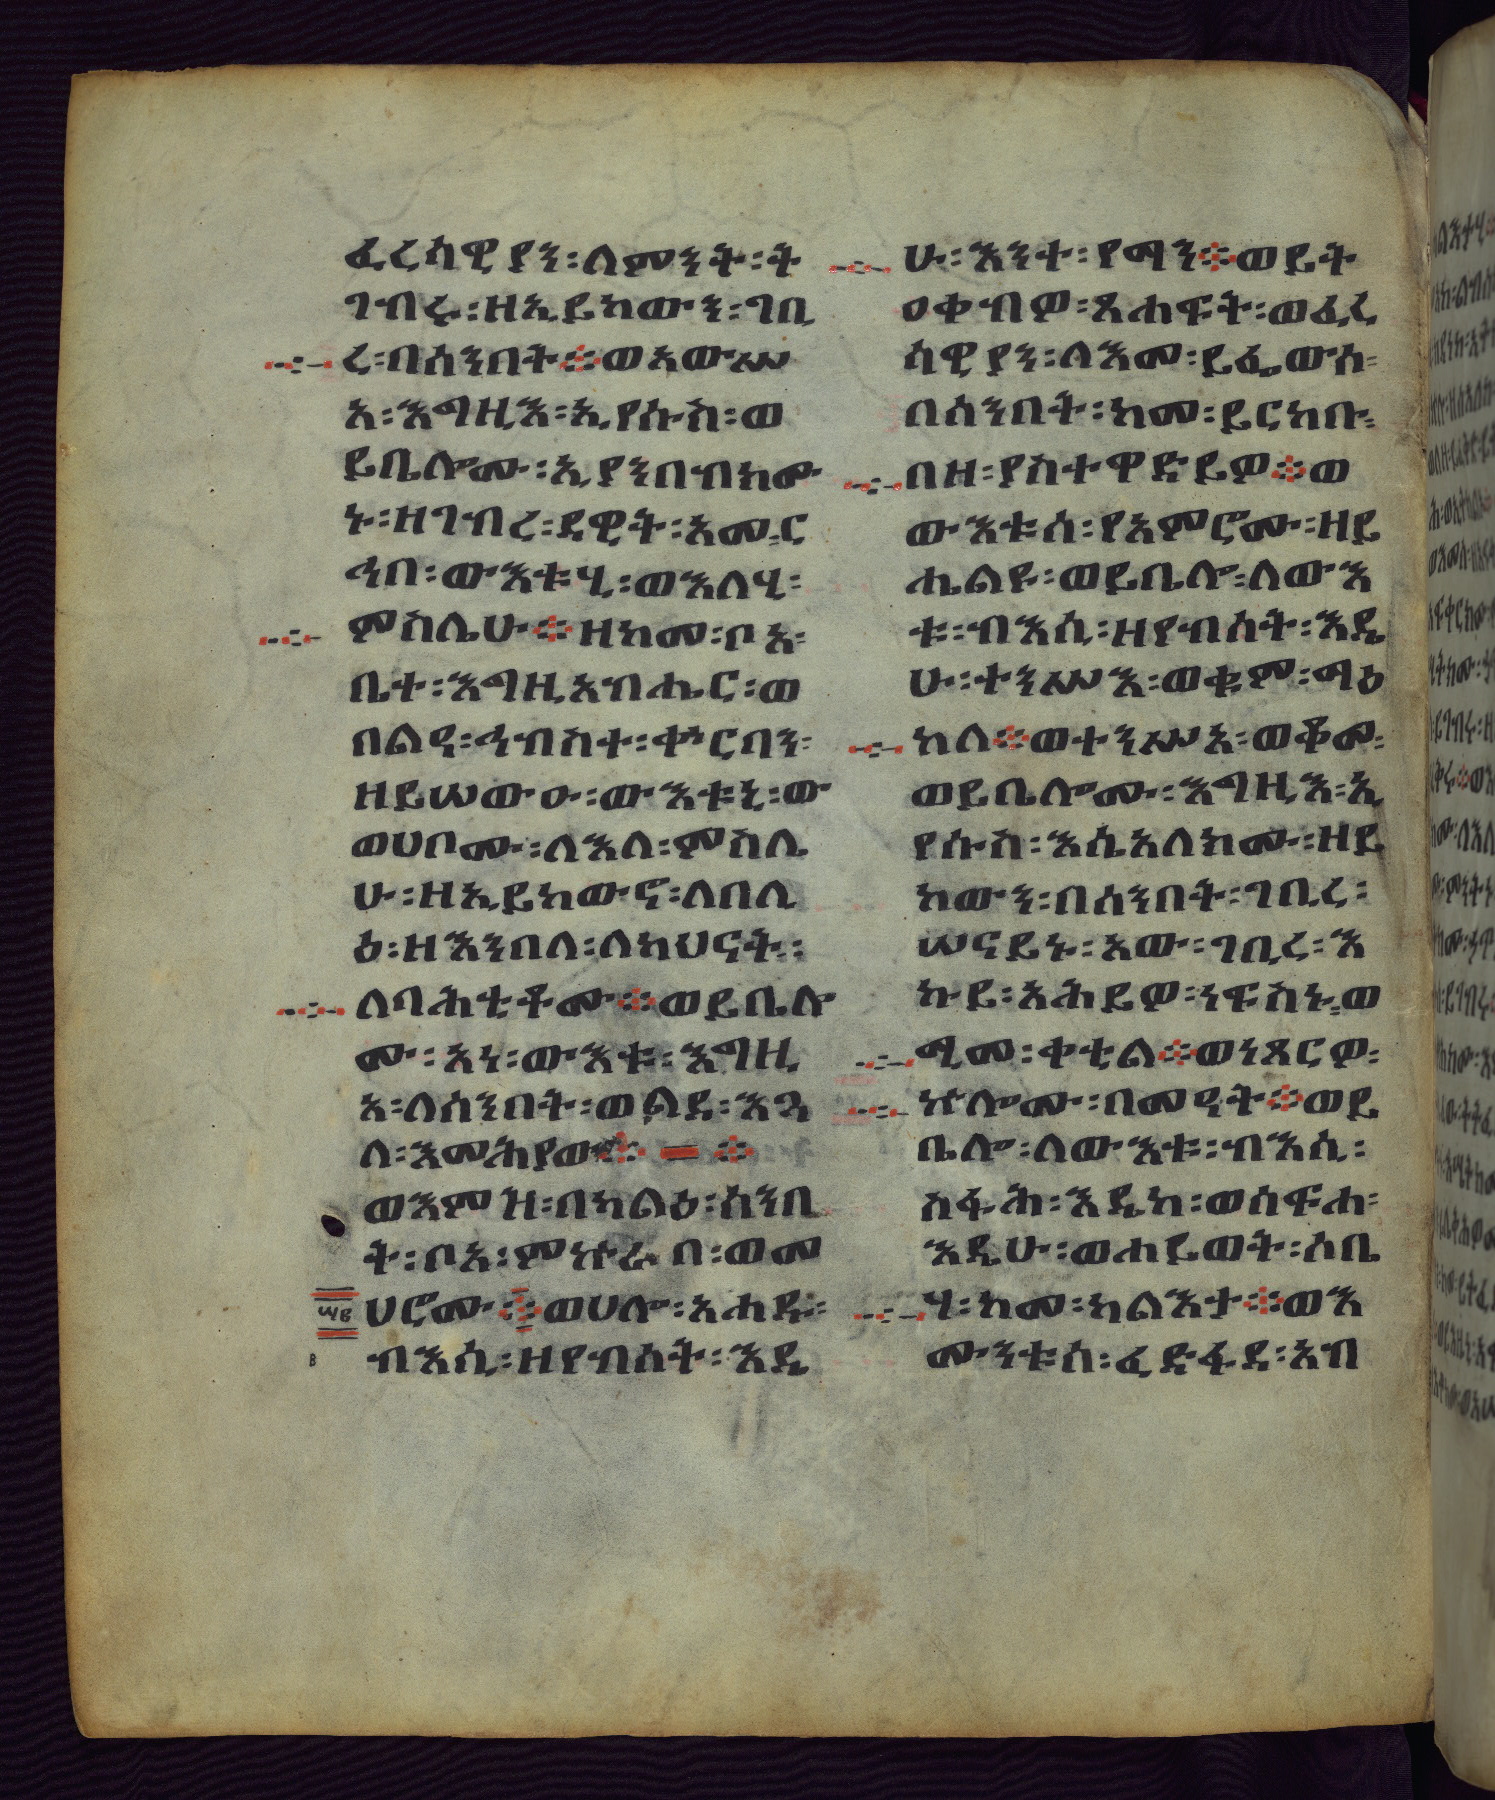 ፈሪሳዊያን፡ለምንት፡ት
ገብሩ፡ዘኢይከውን፡ገቢ
ረ፡በሰንበት፨ወአውሥ
አ፡እግዚእ፡ኢየሱስ፡ወ
ይቤሎሙ፡ኢያንበብክሙ
ኑ፡ዘገብረ፡ዳዊት፡አመ፡ር
ኅበ፡ውእቱሂ፡ወእለሂ፡
ምስሌሁ፨ዘከመ፡ቦአ፡
ቤተ፡እግዚአብሔር፡ወ
በልዓ፡ኅብስተ፡ቍርባን፡
ዘይሠውዑ፡ውእቱኒ፡ወ
ወሀቦሙ፡ለእለ፡ምስሌ
ሁ፡ዘኢይከውኖ፡ለበሊ
ዕ፡ዘእንበለ፡ለካህናት፡
ለባሕቲቶሙ፨ወይቤሎ
ሙ፡አነ፡ውእቱ፡እግዚ
አ፡ለሰንበት፡ወልደ፡እጓ
ለ፡እመሕያው፨ ፨
ወእምዝ፡በካልዕ፡ሰንበ
ት፡ቦአ፡ምኵራበ፡ወመ
ሀሮሙ፨ወሀሎ፡አሐዱ፡
ብእሲ፡ዘየብሰት፡እዴ
ሁ፡እንተ፡የማን፨ወይት
ዐቀብዎ፡ጸሐፍት፡ወፈሪ
ሳዊያን፡ለእመ፡ይፌውስ፡
በሰንበት፡ከመ፡ይርከቡ፡
በዘ፡ያስተዋድይዎ፨ወ
ውእቱሰ፡የአምሮሙ፡ዘይ
ሔልዩ፡ወይቤሎ፡ለውእ
ቱ፡ብእሲ፡ዘየብሰት፡እዴ
ሁ፡ተንሥእ፡ወቁም፡ማዕ
ከለ፨ወተንሥአ፡ወቆመ፡
ወይቤሎሙ፡እግዚእ፡ኢ
የሱስ፡እሴአለክሙ፡ዘይ
ከውን፡በሰንበት፡ገቢረ፡
ሠናይኑ፡አው፡ገቢረ፡እ
ኩይ፡አሕይዎ፡ነፍስኑ፡ወ
ሚመ፡ቀቲል፨ወነጸርዎ፡
ኵሎሙ፡በመዓት፨ወይ
ቤሎ፡ለውእቱ፡ብእሲ፡
ስፋሕ፡እዴከ፡ወሰፍሐ፡
እዴሁ፡ወሐይወት፡ሶቤ
ሃ፡ከመ፡ካልእታ፨ወእ
ሙንቱሰ፡ፈድፋደ፡አብ